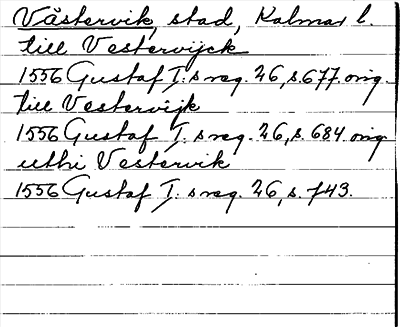 Västervik, stad, Kalmar l.
till Vestervijck
1556 Gustaf I:s reg. 26, s. 677. orig.
till Vestervijk
1556 Gustaf I:s reg. 26, s. 684. orig
uthi Vestervik
1556 Gustaf I:s reg. 26, s. 743.